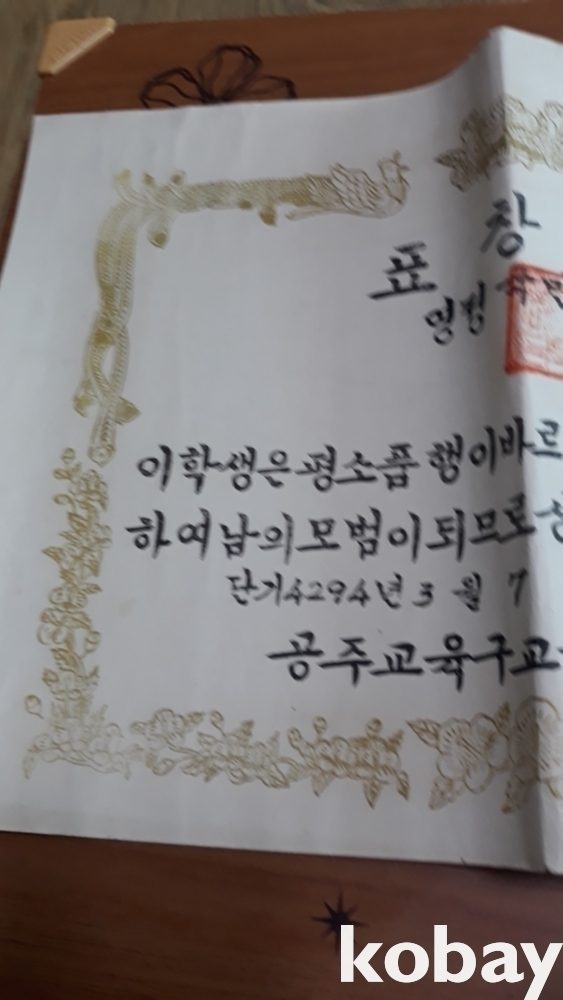 표 창
영정 국민
이 학생은 평소 품행이 바르
하여 남의 모범이 되므로
단기 4294년 3월 7
공주교육구교
kobay